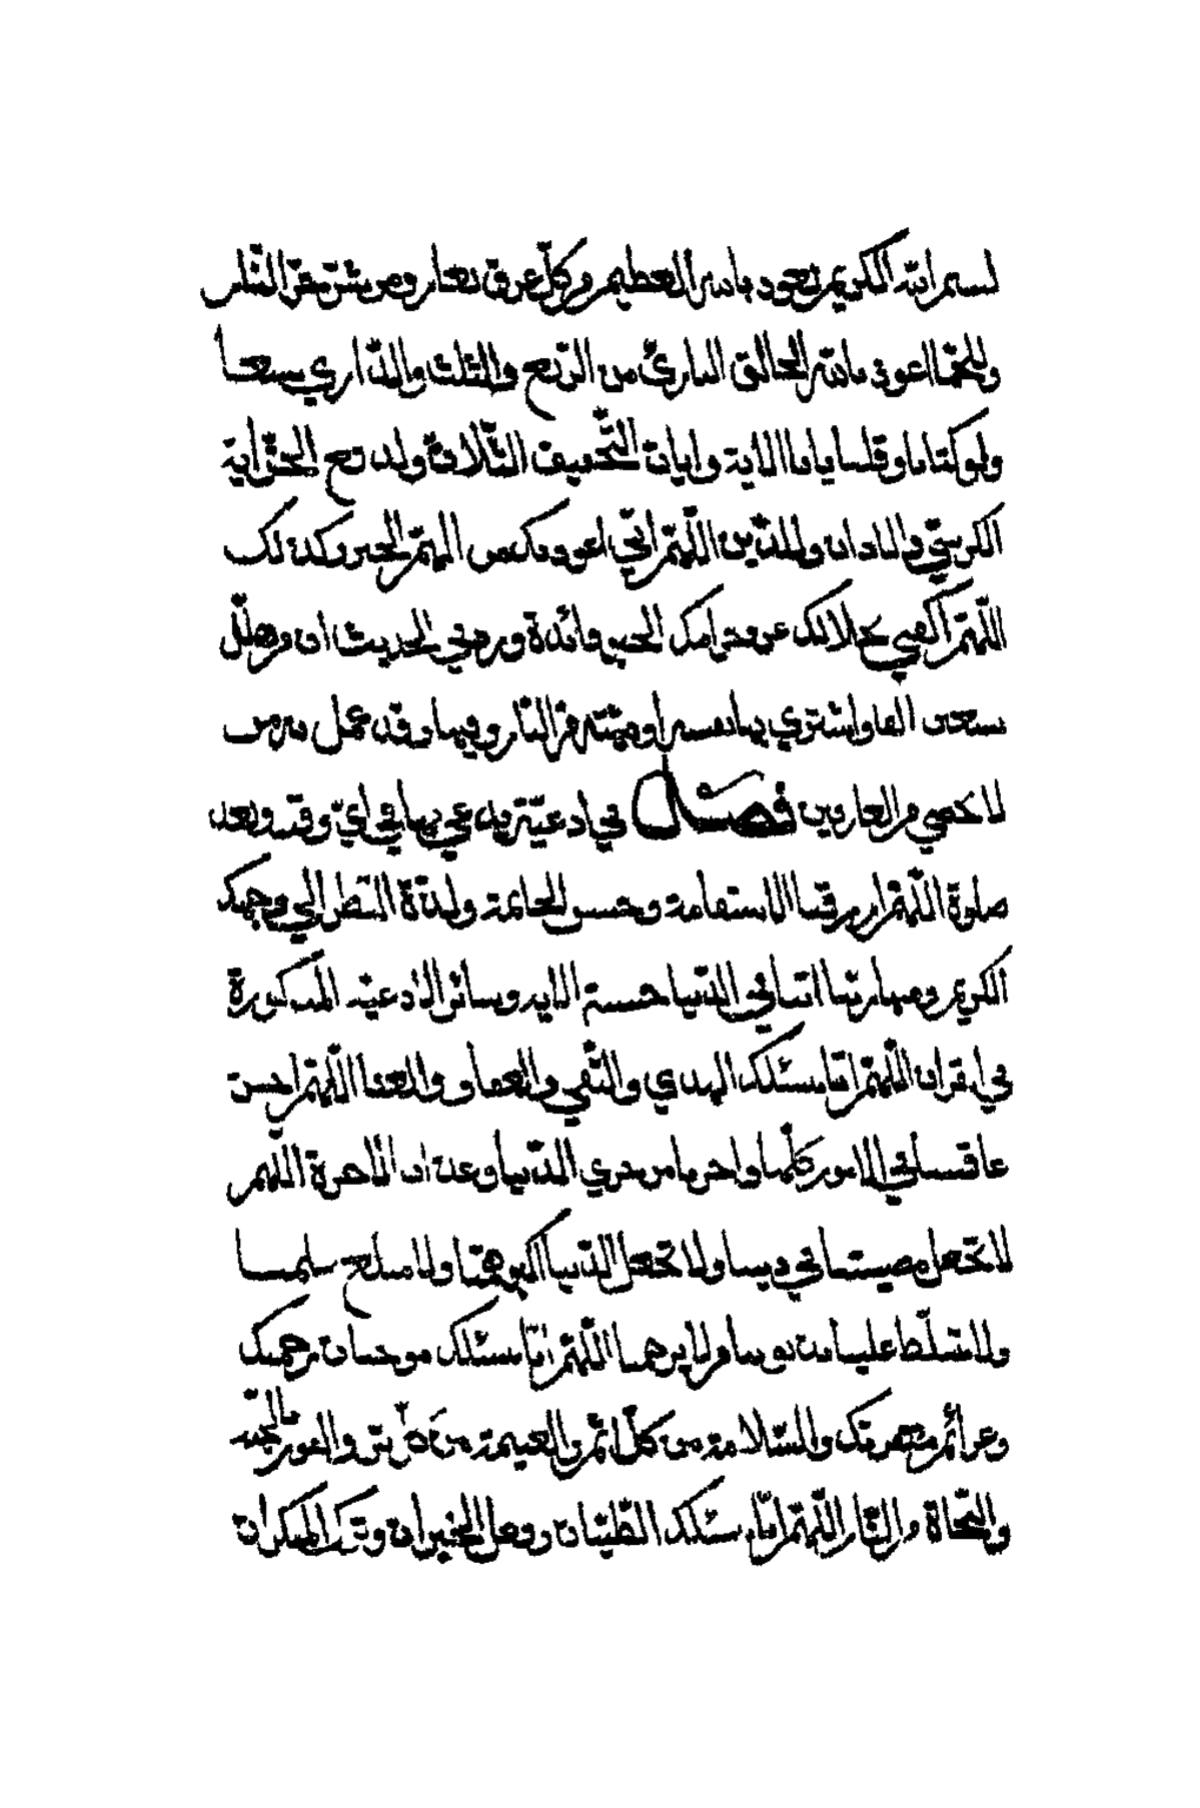 بسم الله الكريم نعوذ بالله العظيم من كل عرق نعار ومن شر حر النار
وللحما اعوذ بالله الخالق البارئ من الربع والثلث والذاري سبعا
ولو كتابا وقلنا يا نار الاية وايات التخفيف الثلاث ولدفع الجن اية
الكرسي والاذان وللدين اللهم اني اعوذ بك من الهم والحزن وكذلك
اللهم اكفني بحلالك عن حرامك الخ فائدة ورد في الحديث ان من هلل
سبعين الفا واشترى بها نفسه او ميته من النار وفيها وقد عمل به من
لا يحصى من العارفين فصل في ادعية يدعى بها في اي وقت وبعد
صلوة اللهم ارزقنا الاستقامة وحسن الخاتمة ولذة النظر الى وجهك
الكريم ومنها ربنا اتنا في الدنيا حسنة الاية وسائر الادعية المذكورة
في القران اللهم انا نسئلك الهدي والتقي والعفاف والغنا اللهم احسن
عاقبتنا في الامور كلها واجرنا من خزي الدنيا وعذاب الاخرة اللهم
لا تجعل مصيبتنا في ديننا ولا تجعل الدنيا اكبر همنا ولا مبلغ علمنا
ولا تسلط علينا بذنوبنا من لا يرحمنا اللهم انا نسئلك موجبات رحمتك
وعزائم مغفرتك والسلامة من كل اثم والغنيمة من كل بر والفوز بالجنة
والنجاة من النار اللهم انا نسئلك الطيبات وفعل الخيرات وترك المنكرات